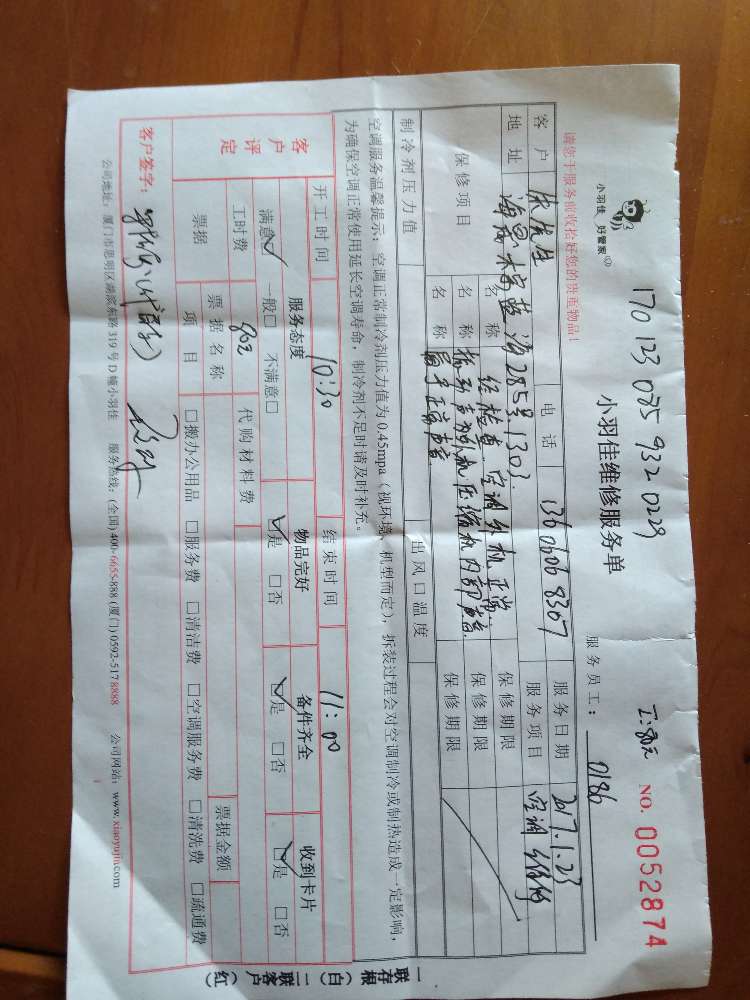 170 123 035 932 0229
小羽佳 好管家
小羽佳维修服务单
NO. 0052874
服务员工： 0186
请您于服务前收拾好您的贵重物品！
客户 电话 136 0606 8367 服务日期 2017.1.23
地址 285号1303 服务项目 空调维修
保修项目 名称 经检查，空调外机正常 保修期限
名称 振动声视外机压缩机内部声音 保修期限
名称 属于正常声音 保修期限
制冷剂压力值 出风口温度
空调服务温馨提示：空调正常制冷剂压力值为0.45mpa（视环境、机型而定），拆装过程会对空调制冷或制热造成一定影响，
为确保空调正常使用延长空调寿命，制冷剂不足时请及时补充。
开工时间 10:30 结束时间 11:00
客户评定 服务态度 物品完好 备件齐全 收到卡片
满意☑ 一般□ 不满意□ ☑是 □否 ☑是 □否 ☑是 □否
工时费 80元 代购材料费
票据 票据名称 票据金额
项目 □搬办公用品 □服务费 □清洁费 □空调服务费 □清洗费 □疏通费
客户签字：
公司地址：厦门市思明区湖滨东路319号D幢小羽佳 服务热线：(全国)400-6655-888 (厦门)0592-517 8888 公司网站：www.xiaoyujia.com
一联存根（白） 二联客户（红）